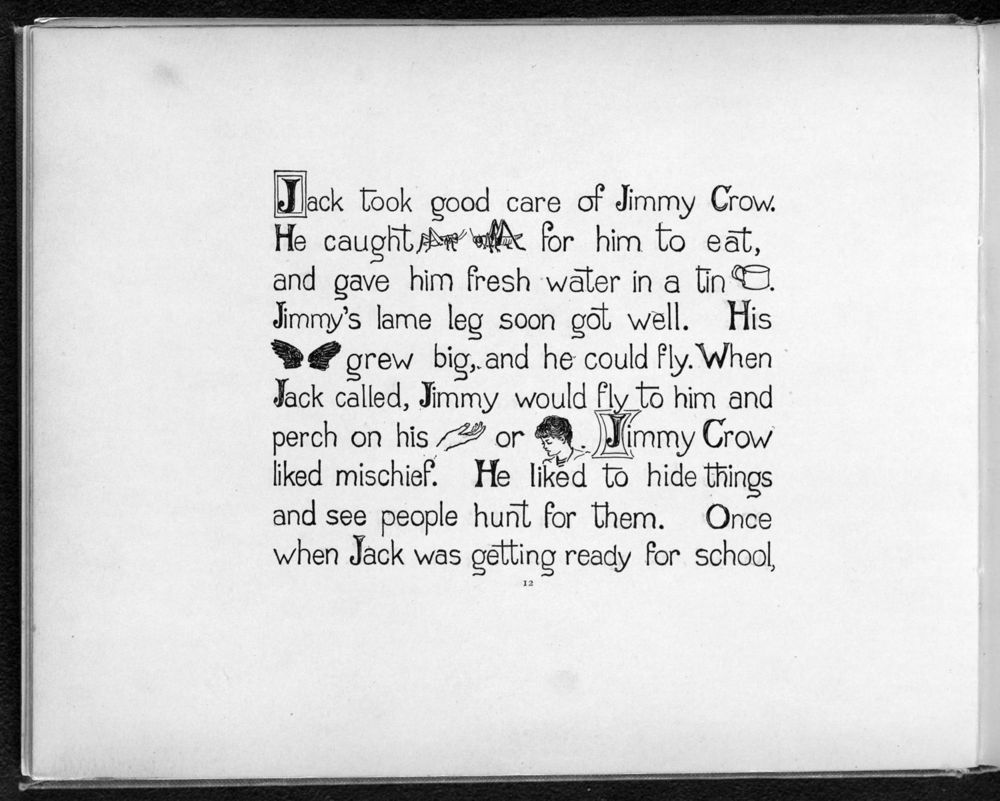 Jack took good care of Jimmy Crow.
He caught for him to eat,
and gave him fresh water in a tin .
Jimmy's lame leg soon got well. His
grew big, and he could fly. When
Jack called, Jimmy would fly to him and
perch on his or . Jimmy Crow
liked mischief. He liked to hide things
and see people hunt for them. Once
when Jack was getting ready for school,
12